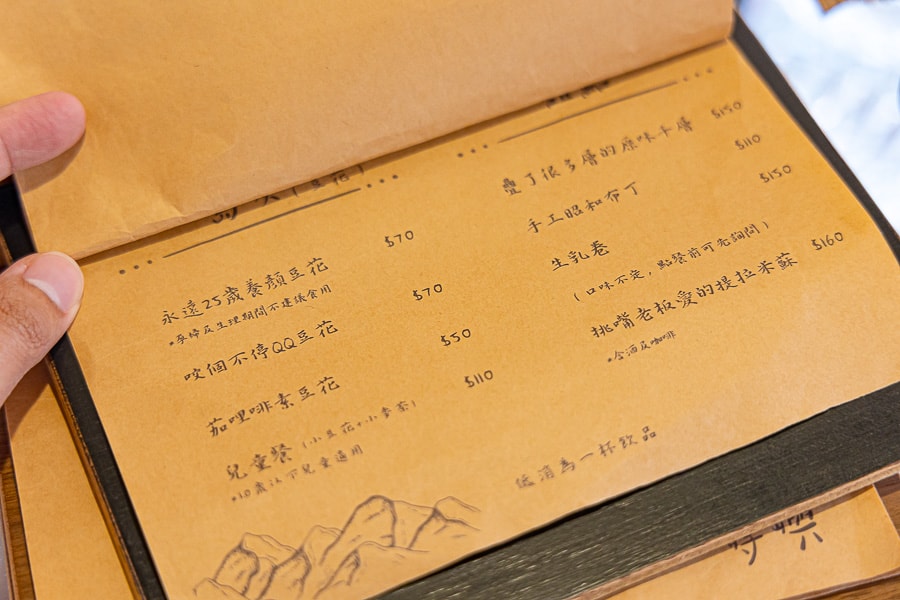 (豆花)
永遠25歲養顏豆花 $70
*孕婦及生理期間不建議食用
咬個不停QQ豆花 $70
茄哩啡素豆花 $50
兒童餐(小豆花+小麥茶) $110
*10歲以下兒童適用
疊了很多層的原味千層 $150
手工昭和布丁 $110
生乳卷 $150
(口味不定,點餐前可先詢問)
挑嘴老板愛的提拉米蘇 $160
*含酒及咖啡
低消為一杯飲品